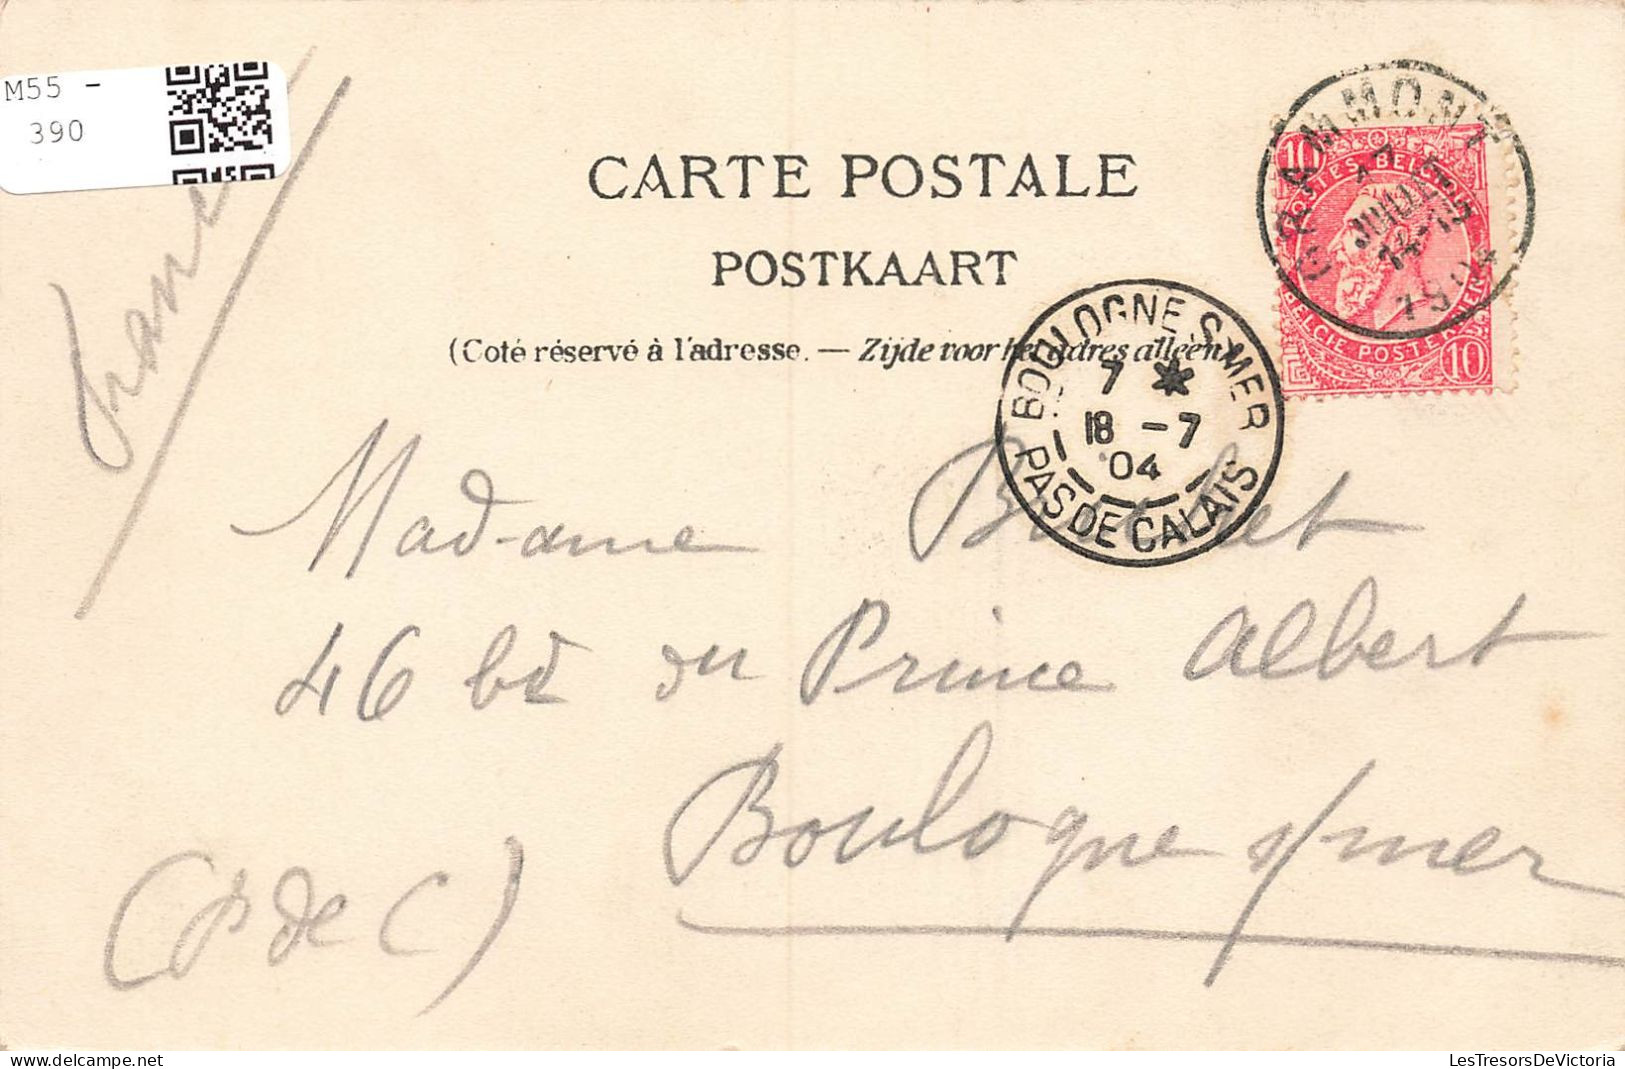 M55 -
390
CARTE POSTALE
POSTKAART
(Coté réservé à l'adresse. — Zijde voor het adres alleen)
GRAMMONT
17
JUILLET
14-15
1904
10 10
POSTES BELGIQUE
BELGIE POSTERIJEN
10
BOULOGNE S. MER
7 *
18 - 7
04
PAS DE CALAIS
France
Madame
46 bd du Prince Albert
Boulogne s/mer
(P de C)
LesTresorsDeVictoria
delcampe.net